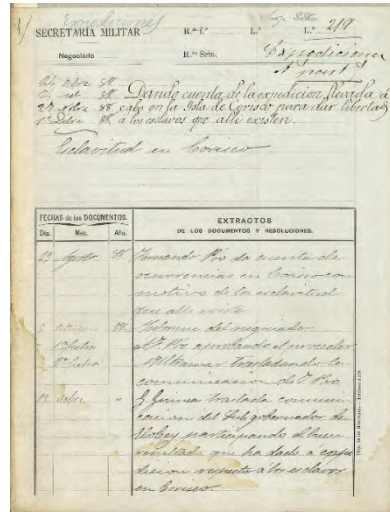 Expediciones
SECRETARÍA MILITAR R.do 1.º L.º L.º 219
Negociado R.do Srio. Expediciones
Dando cuenta de la expedicion llevada á
cabo en la Isla de Corisco para dar libertad
á los esclavos que allí existen.
Esclavitud en Corisco
FECHAS de los DOCUMENTOS.
EXTRACTOS
DE LOS DOCUMENTOS Y RESOLUCIONES.
Día. Mes. Año.
Agosto Fernando Póo da cuenta de
ocurrencias en Corisco con
motivo de la esclavitud
que allí existe
Informe del negociado
aprobando el proceder
Ultramar trasladando la
comunicacion de Póo
G. Guinea traslada comuni-
cacion del Subgobernador de
Elobey participando el buen
resultado que ha dado a expe-
dicion respecto á los esclavos
en Corisco.